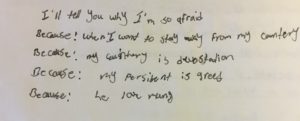 I'll tell you why I'm so afraid
Because! when I want to stay away from my country
Because: my country is devastation
Because: my persident is greed
Because: he